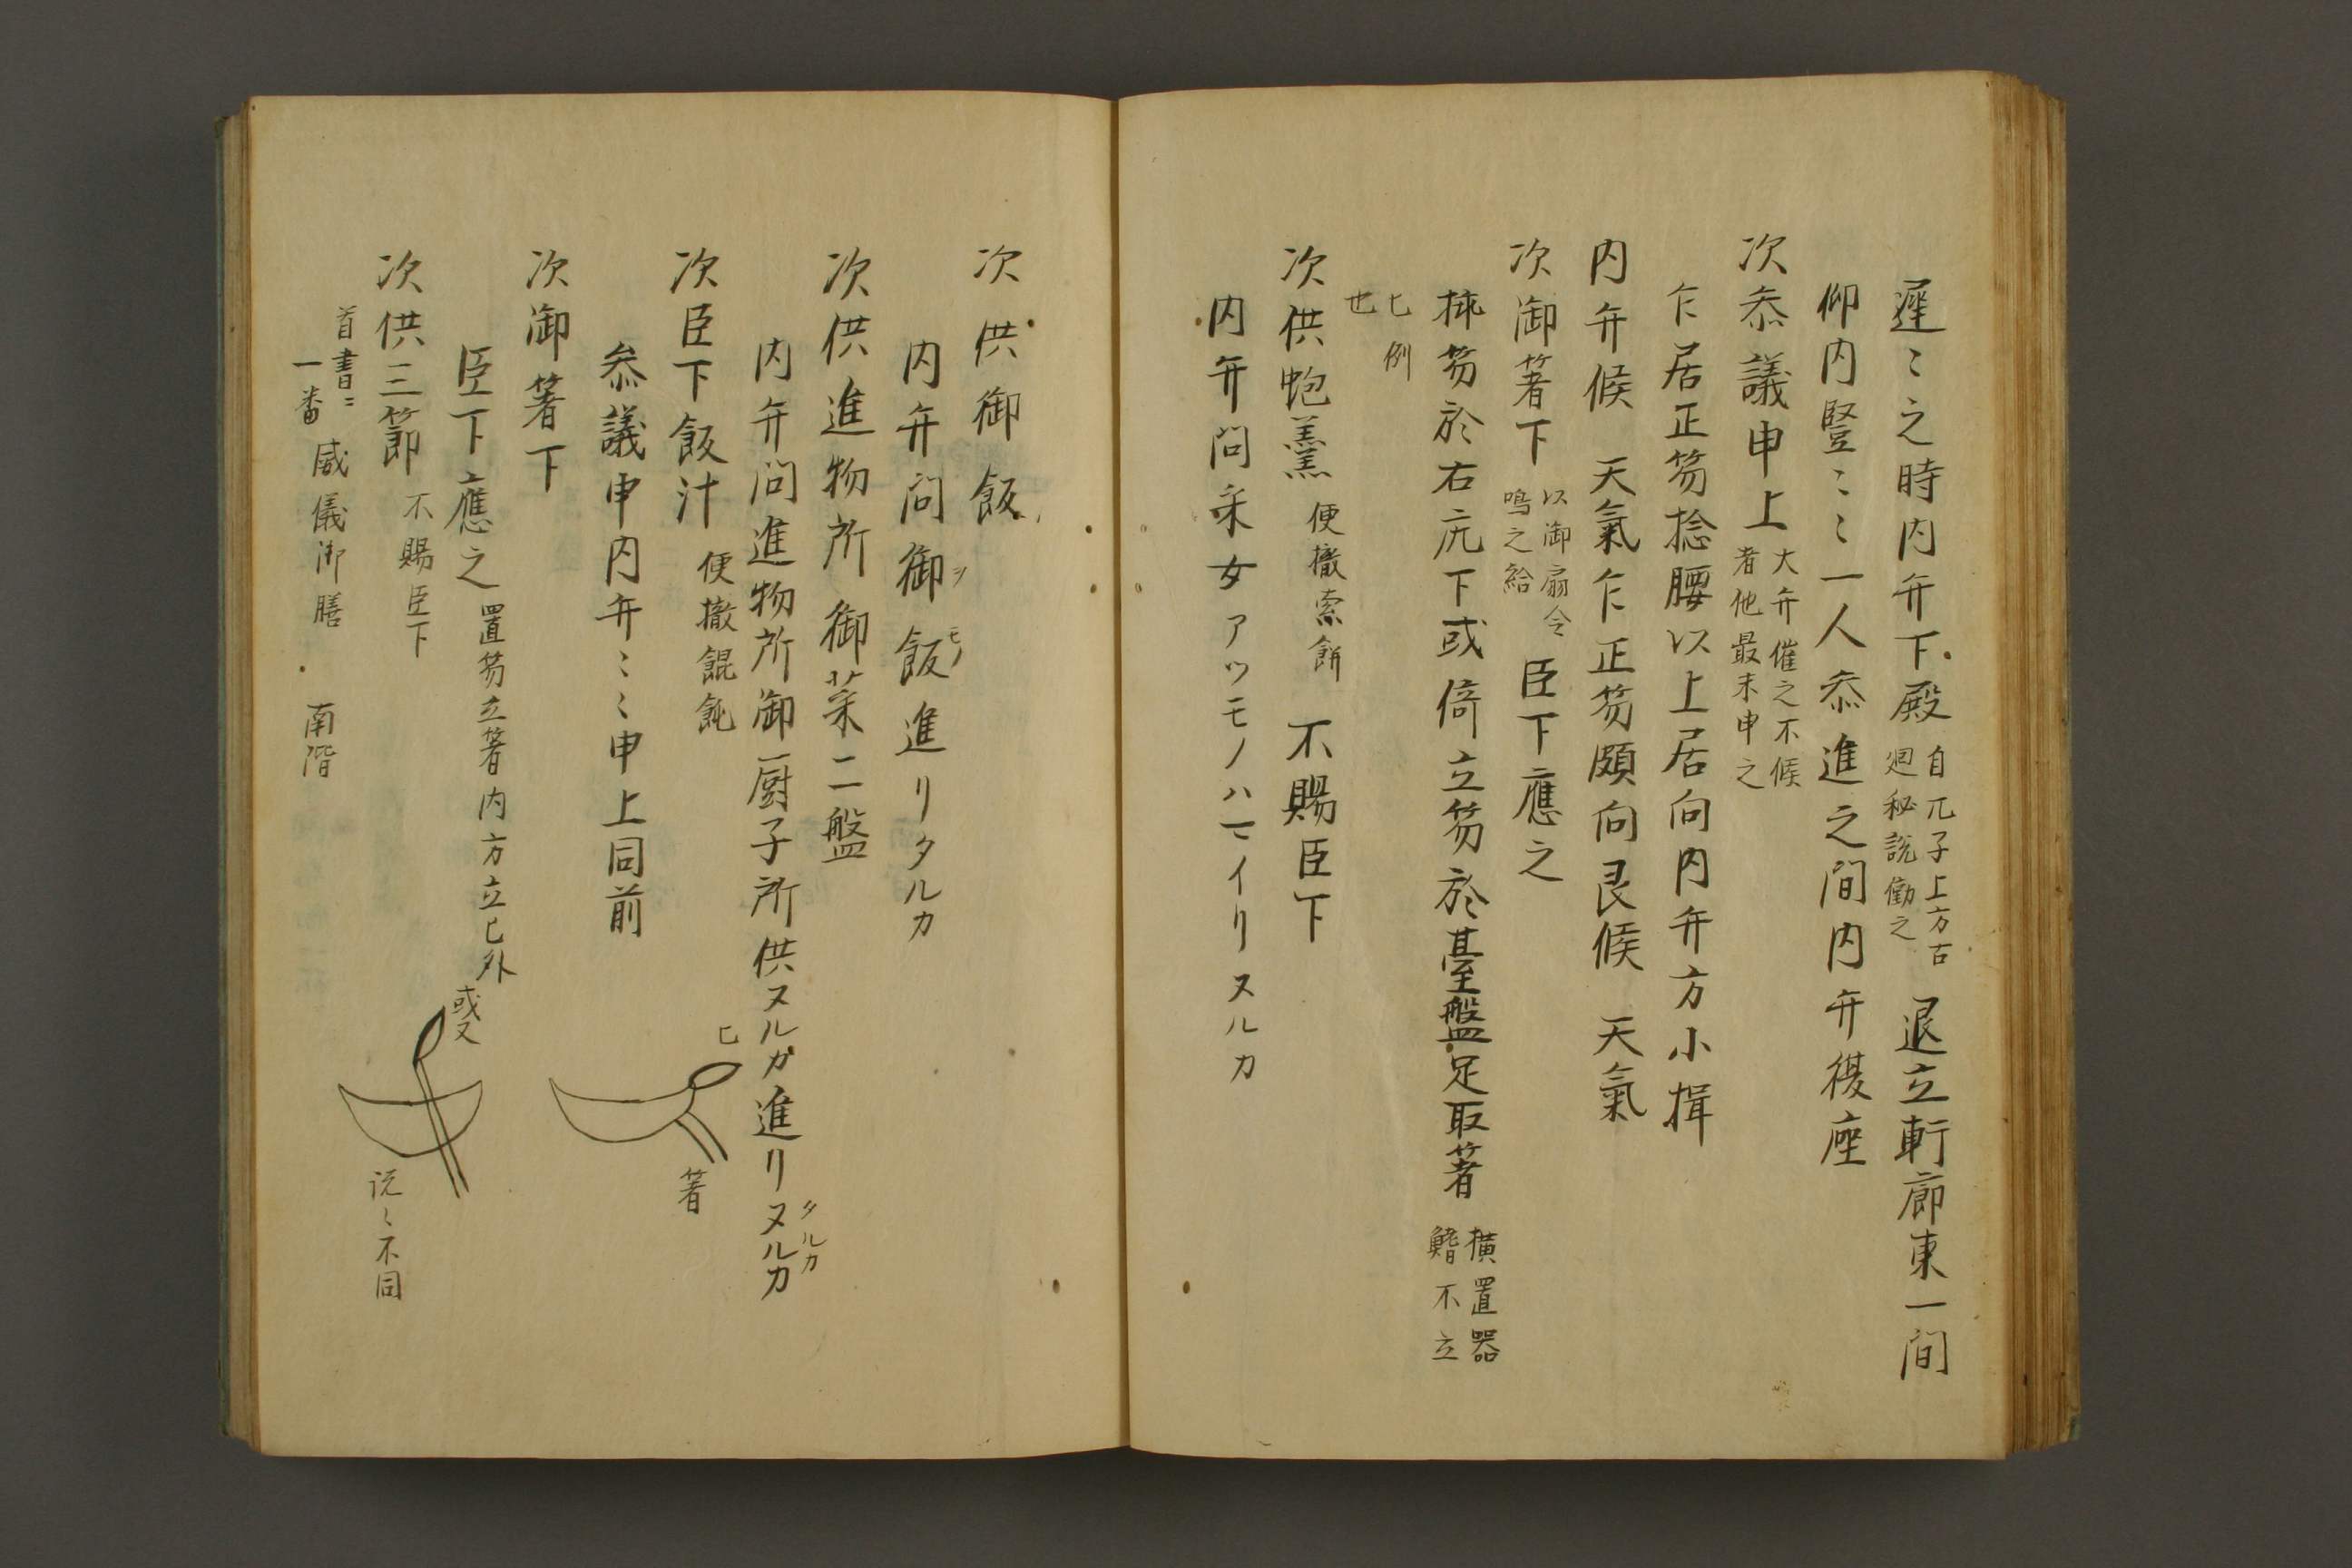 遲〻之時内弁下殿 自兀子上方右 廻秘説働之 退立軒廊東一間
仰内豎〻〻一人参進之間内弁復座
次参議申上 大弁催之不候 者他最末申之
乍居正笏捻腰以上居向内弁方小揖
内弁候 天氣乍正笏頗向艮候 天氣
次御箸下 以御扇令 鳴之給 臣下應之
挿笏於右尻下或倚立笏於臺盤足取箸 横置器 鰭不立
匕例 也
次供蚫羹 便撤索餅 不賜臣下
内弁問采女アツモノハマイリヌルカ
次供御飯
内弁問御飯進リタルカ
ヲ モノ
次供進物所 御菜二盤
内弁問進物所御厨子所供ヌルカ進リヌルカ
タルカ
次臣下飯汁 便撤餛飩
参議申内弁〻〻申上同前
次御箸下
臣下應之 置笏立箸内方立匕外
匕
箸
或又
説〻不同
次供三節 不賜臣下
首書ニ
一番 威儀御膳 南階